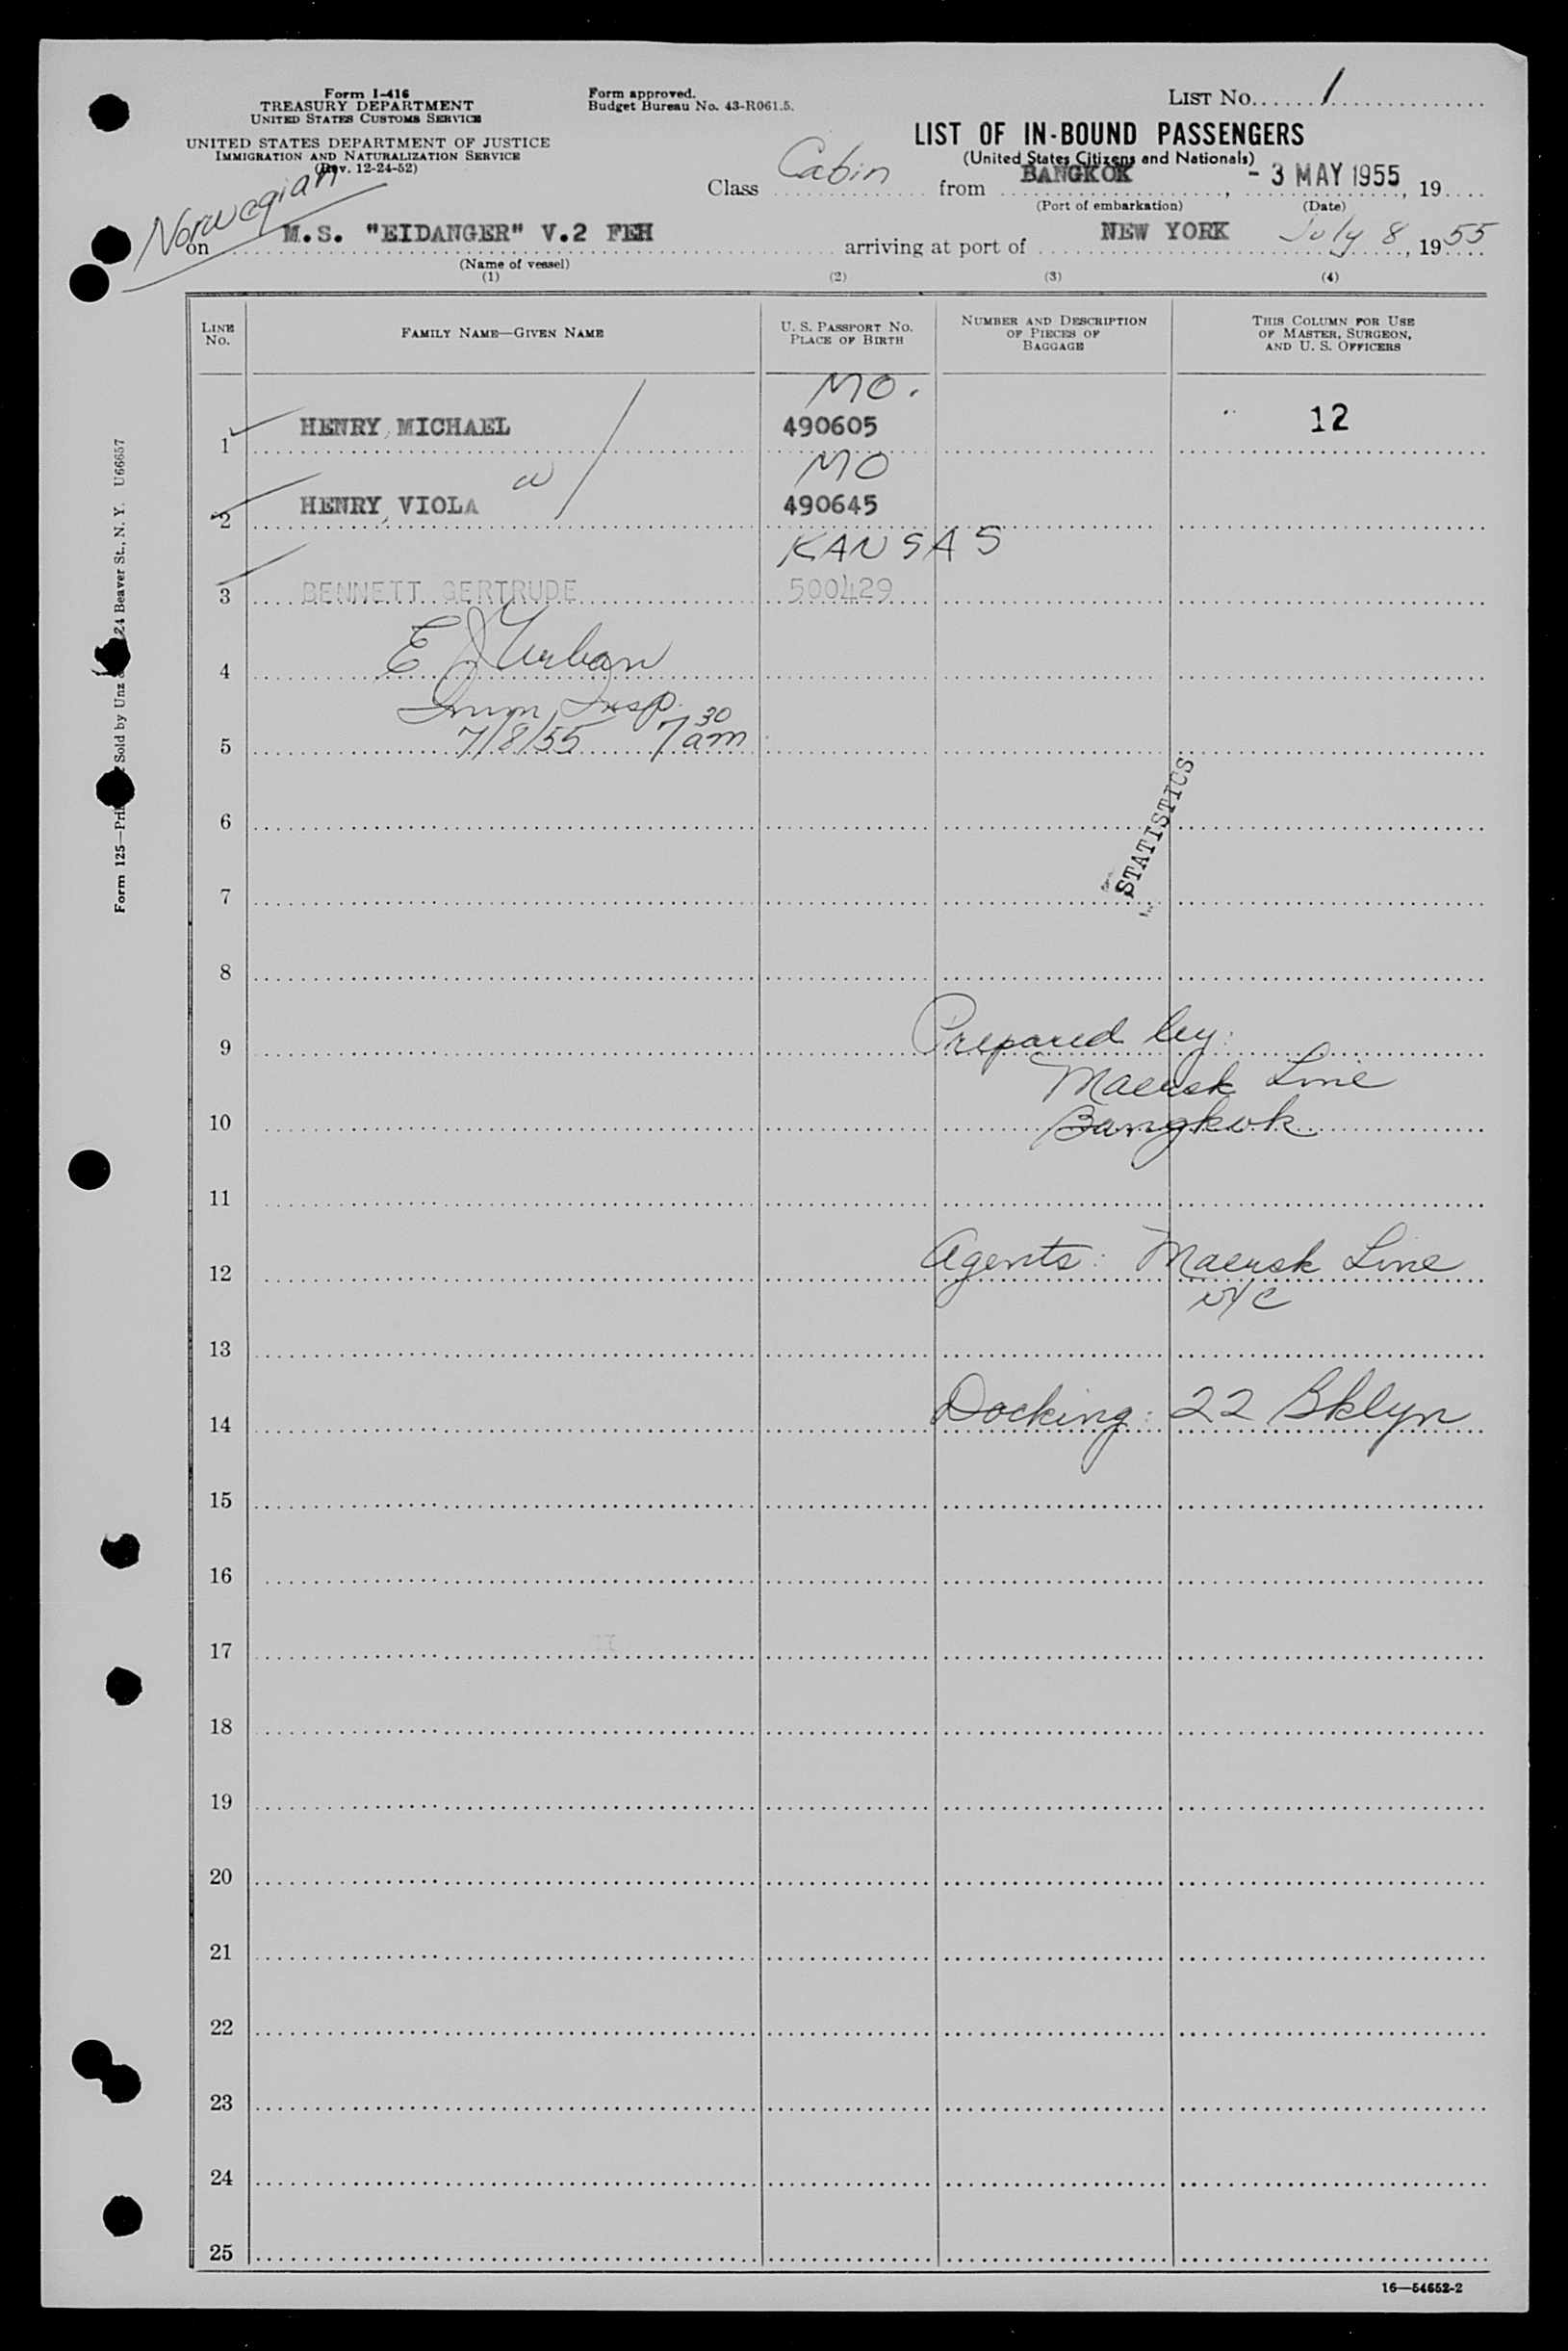 Form I-416
TREASURY DEPARTMENT
UNITED STATES CUSTOMS SERVICE
UNITED STATES DEPARTMENT OF JUSTICE
IMMIGRATION AND NATURALIZATION SERVICE
(Rev. 12-24-52)
Form approved.
Budget Bureau No. 43-R061.5.
LIST NO. 1
LIST OF IN-BOUND PASSENGERS
(United States Citizens and Nationals)
Class Cabin from BANGKOK, - 3 MAY 1955, 19
(Port of embarkation) (Date)
Norwegian
on M.S. "EIDANGER" V.2 FEH arriving at port of NEW YORK July 8, 1955
(Name of vessel)
(1) (2) (3) (4)
LINE NO. FAMILY NAME—GIVEN NAME U. S. PASSPORT NO. PLACE OF BIRTH NUMBER AND DESCRIPTION OF PIECES OF BAGGAGE THIS COLUMN FOR USE OF MASTER, SURGEON, AND U. S. OFFICERS
MO.
1 HENRY, MICHAEL 490605 12
MO
2 HENRY, VIOLA 490645
KANSAS
3 BENNETT GERTRUDE 500429
E J Urban
4
Imm Insp.
5 7/8/55 7 30 am
6
STATISTICS
7
8
9 Prepared by:
Maersk Line
10 Bangkok
11
12 Agents: Maersk Line
NYC
13
14 Docking: 22 Bklyn
15
16
17
18
19
20
21
22
23
24
25
16—54652-2
Form 125— Sold by Unz 24 Beaver St., N. Y. U66657